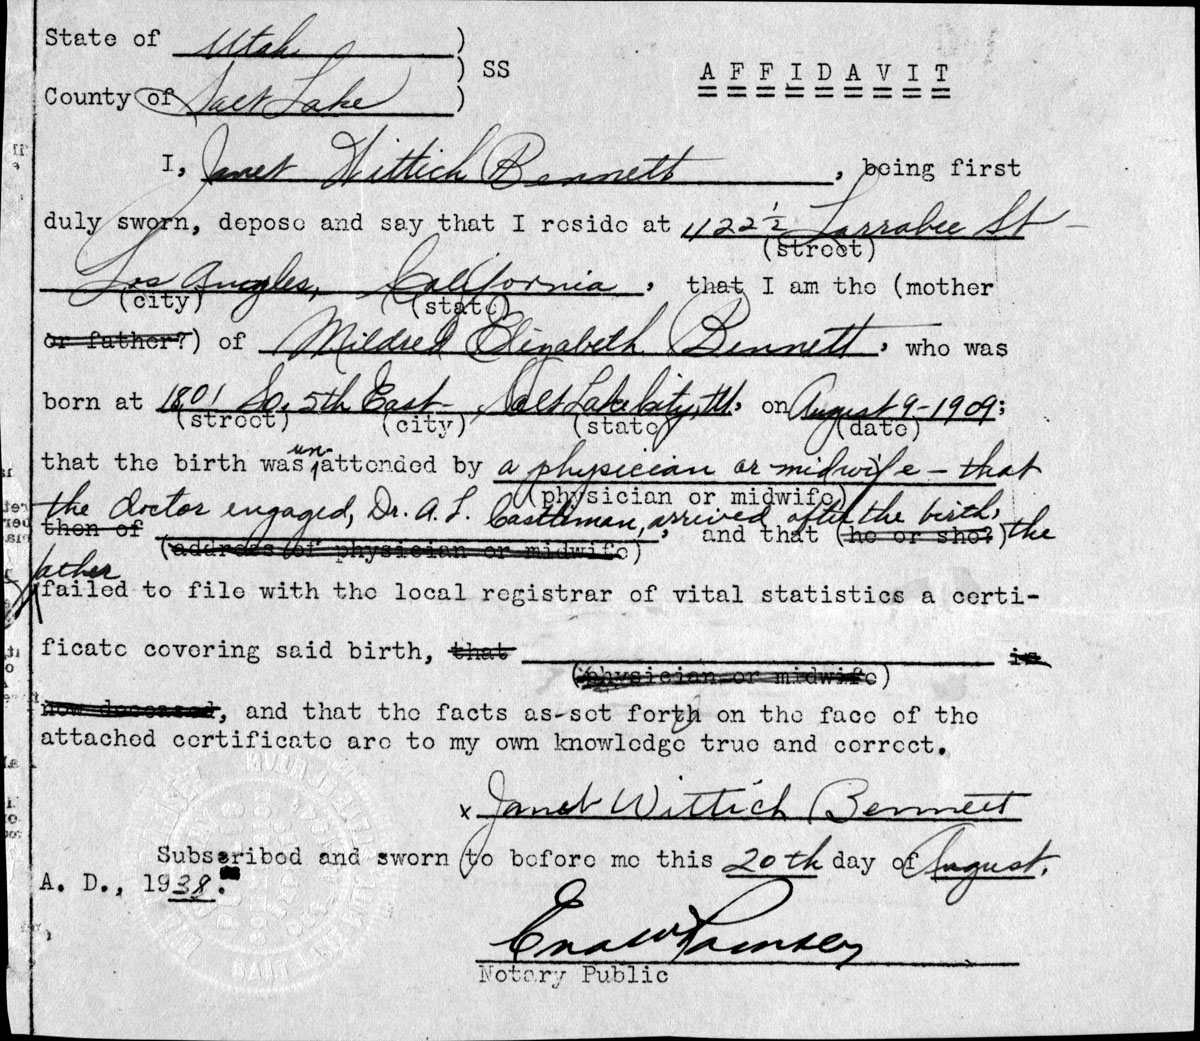 State of Utah )
) SS
AFFIDAVIT
County of Salt Lake )
I, Janet Wittich Bennett, being first
duly sworn, depose and say that I reside at 1122 1/2 Larrabee St -
(street)
Los Angles, California, that I am the (mother
(city) (state)
or father?) of Mildred Elizabeth Bennett, who was
born at 1801 So. 5th East - Salt Lake City, Ut, on August 9 - 1909;
(street) (city) (state) (date)
that the birth was un-attended by a physician or midwife - that
(physician or midwife)
the doctor engaged, Dr. A. L. Castleman, arrived after the birth,
then of , and that (he or she?) the
(address of physician or midwife)
father
failed to file with the local registrar of vital statistics a certi-
ficate covering said birth, that is
(physician or midwife)
now deceased, and that the facts as set forth on the face of the
attached certificate are to my own knowledge true and correct.
x Janet Wittich Bennett
Subscribed and sworn to before me this 20th day of August.
A. D., 1938.
Notary Public